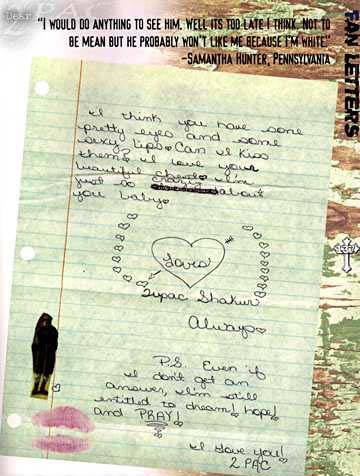 Dear
2PAC
"I WOULD DO ANYTHING TO SEE HIM. WELL ITS TOO LATE I THINK. NOT TO
BE MEAN BUT HE PROBABLY WON'T LIKE ME BECAUSE I'M WHITE."
-SAMANTHA HUNTER, PENNSYLVANIA
FAN LETTERS
137
I think you have some
pretty eyes and some
sexy lips Can I kiss
them? I love your
beautiful chest I'm
just so crazy about
you baby
Loves
Tupac Shakur
Always
P.S. Even if
I don't get an
answer, I'm still
entitled to dream! hope!
and PRAY!
I love you!
2 PAC